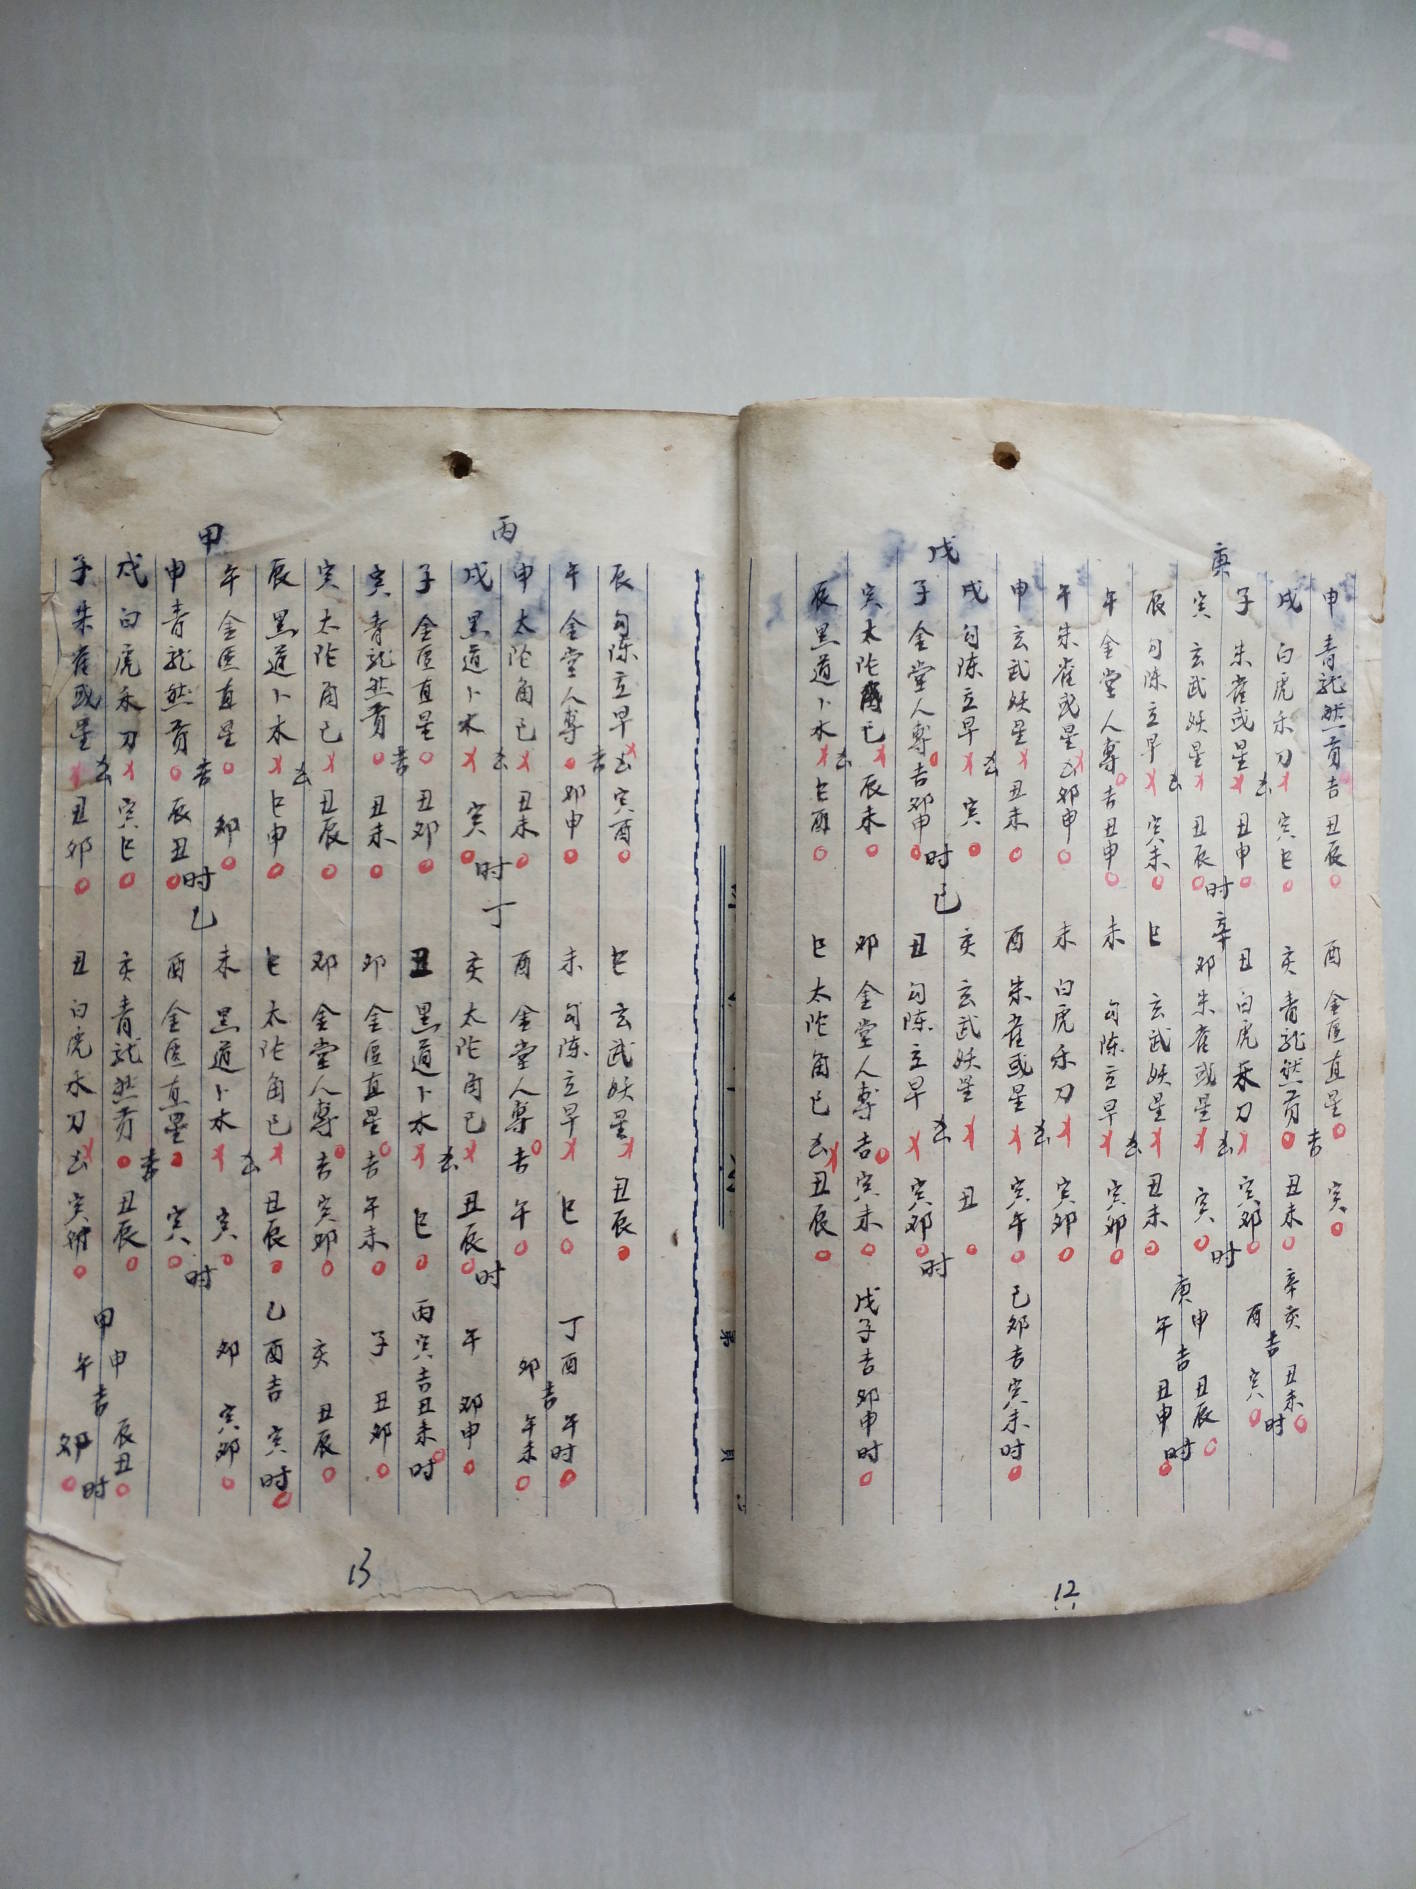 庚
申 青龙然贡 吉 丑辰 酉 金匡直星 吉 寅
戌 白虎禾刀 寅巳 亥 青龙然贡 丑未 辛亥 吉 丑未时
子 朱雀或星 凶 丑申 丑 白虎禾刀 凶 寅卯时 酉 寅
寅 玄武妖星 丑辰时 辛 卯 朱雀或星 寅 庚申 吉 丑辰时
辰 勾陈立早 凶 寅未 巳 玄武妖星 丑未 午 丑申
午 金堂人專 吉 丑申 未 勾陈立早 凶 寅卯
戊
午 朱雀或星 凶 卯申 未 白虎禾刀 寅卯
申 玄武妖星 丑未 酉 朱雀或星 凶 寅午 己卯吉寅未时
戌 勾陈立早 凶 寅 亥 玄武妖星 丑
子 金堂人專 吉 卯申时 己 丑 勾陈立早 凶 寅卯时
寅 太陀角已 辰未 卯 金堂人專 吉 寅未 戊子吉卯申时
辰 黑道卜木 凶 巳酉 巳 太陀角已 凶 丑辰
12
丙
辰 勾陈立早 凶 寅酉 巳 玄武妖星 丑辰
午 金堂人專 吉 卯申 未 勾陈立早 巳 丁酉 午时
申 太陀角已 丑未 酉 金堂人專 吉 午 卯 吉 午未
戌 黑道卜木 凶 寅时 丁 亥 太陀角已 丑辰时 午 卯申
子 金匡直星 丑卯 丑 黑道卜木 凶 巳 丙寅吉丑未时
寅 青龙然贡 吉 丑未 卯 金匡直星 吉 午未 子 丑卯
甲
寅 太陀角已 丑辰 卯 金堂人專 吉 寅卯 亥 丑辰
辰 黑道卜木 凶 巳申 巳 太陀角已 丑辰 乙酉吉 寅时
午 金匡直星 卯 未 黑道卜木 凶 寅 卯 寅卯
申 青龙然贡 吉 辰丑时 乙 酉 金匡直星 寅时
戌 白虎禾刀 寅巳 亥 青龙然贡 吉 丑辰 甲申 吉 辰丑时
子 朱雀或星 凶 丑卯 丑 白虎禾刀 凶 寅 午 卯
13